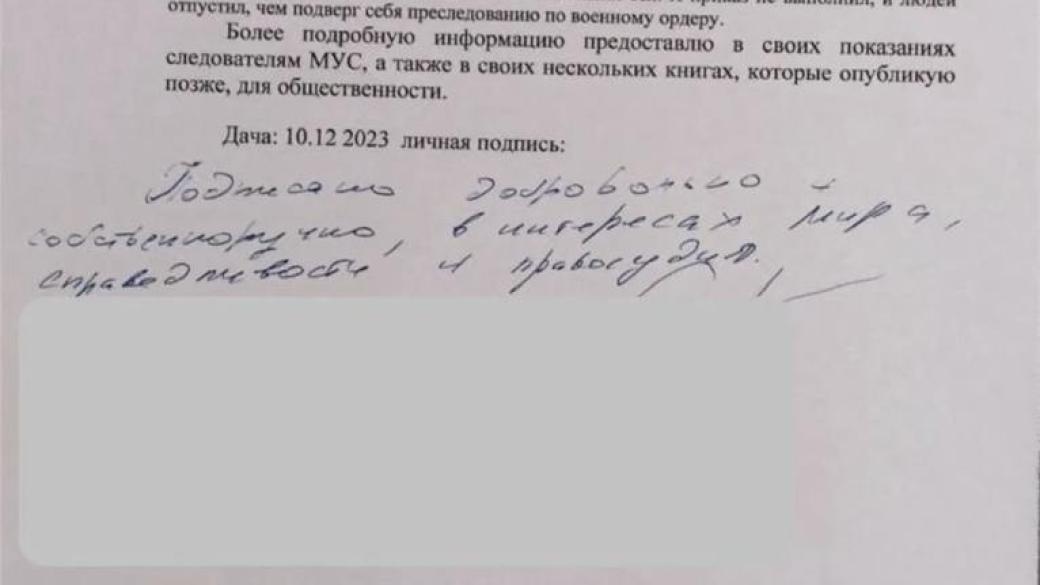 не выполнил, и людей
отпустил, чем подверг себя преследованию по военному ордеру.
Более подробную информацию предоставлю в своих показаниях
следователям МУС, а также в своих нескольких книгах, которые опубликую
позже, для общественности.
Дача: 10.12 2023 личная подпись:
Подписано добровольно и
собственноручно, в интересах мира,
справедливости и правосудия.